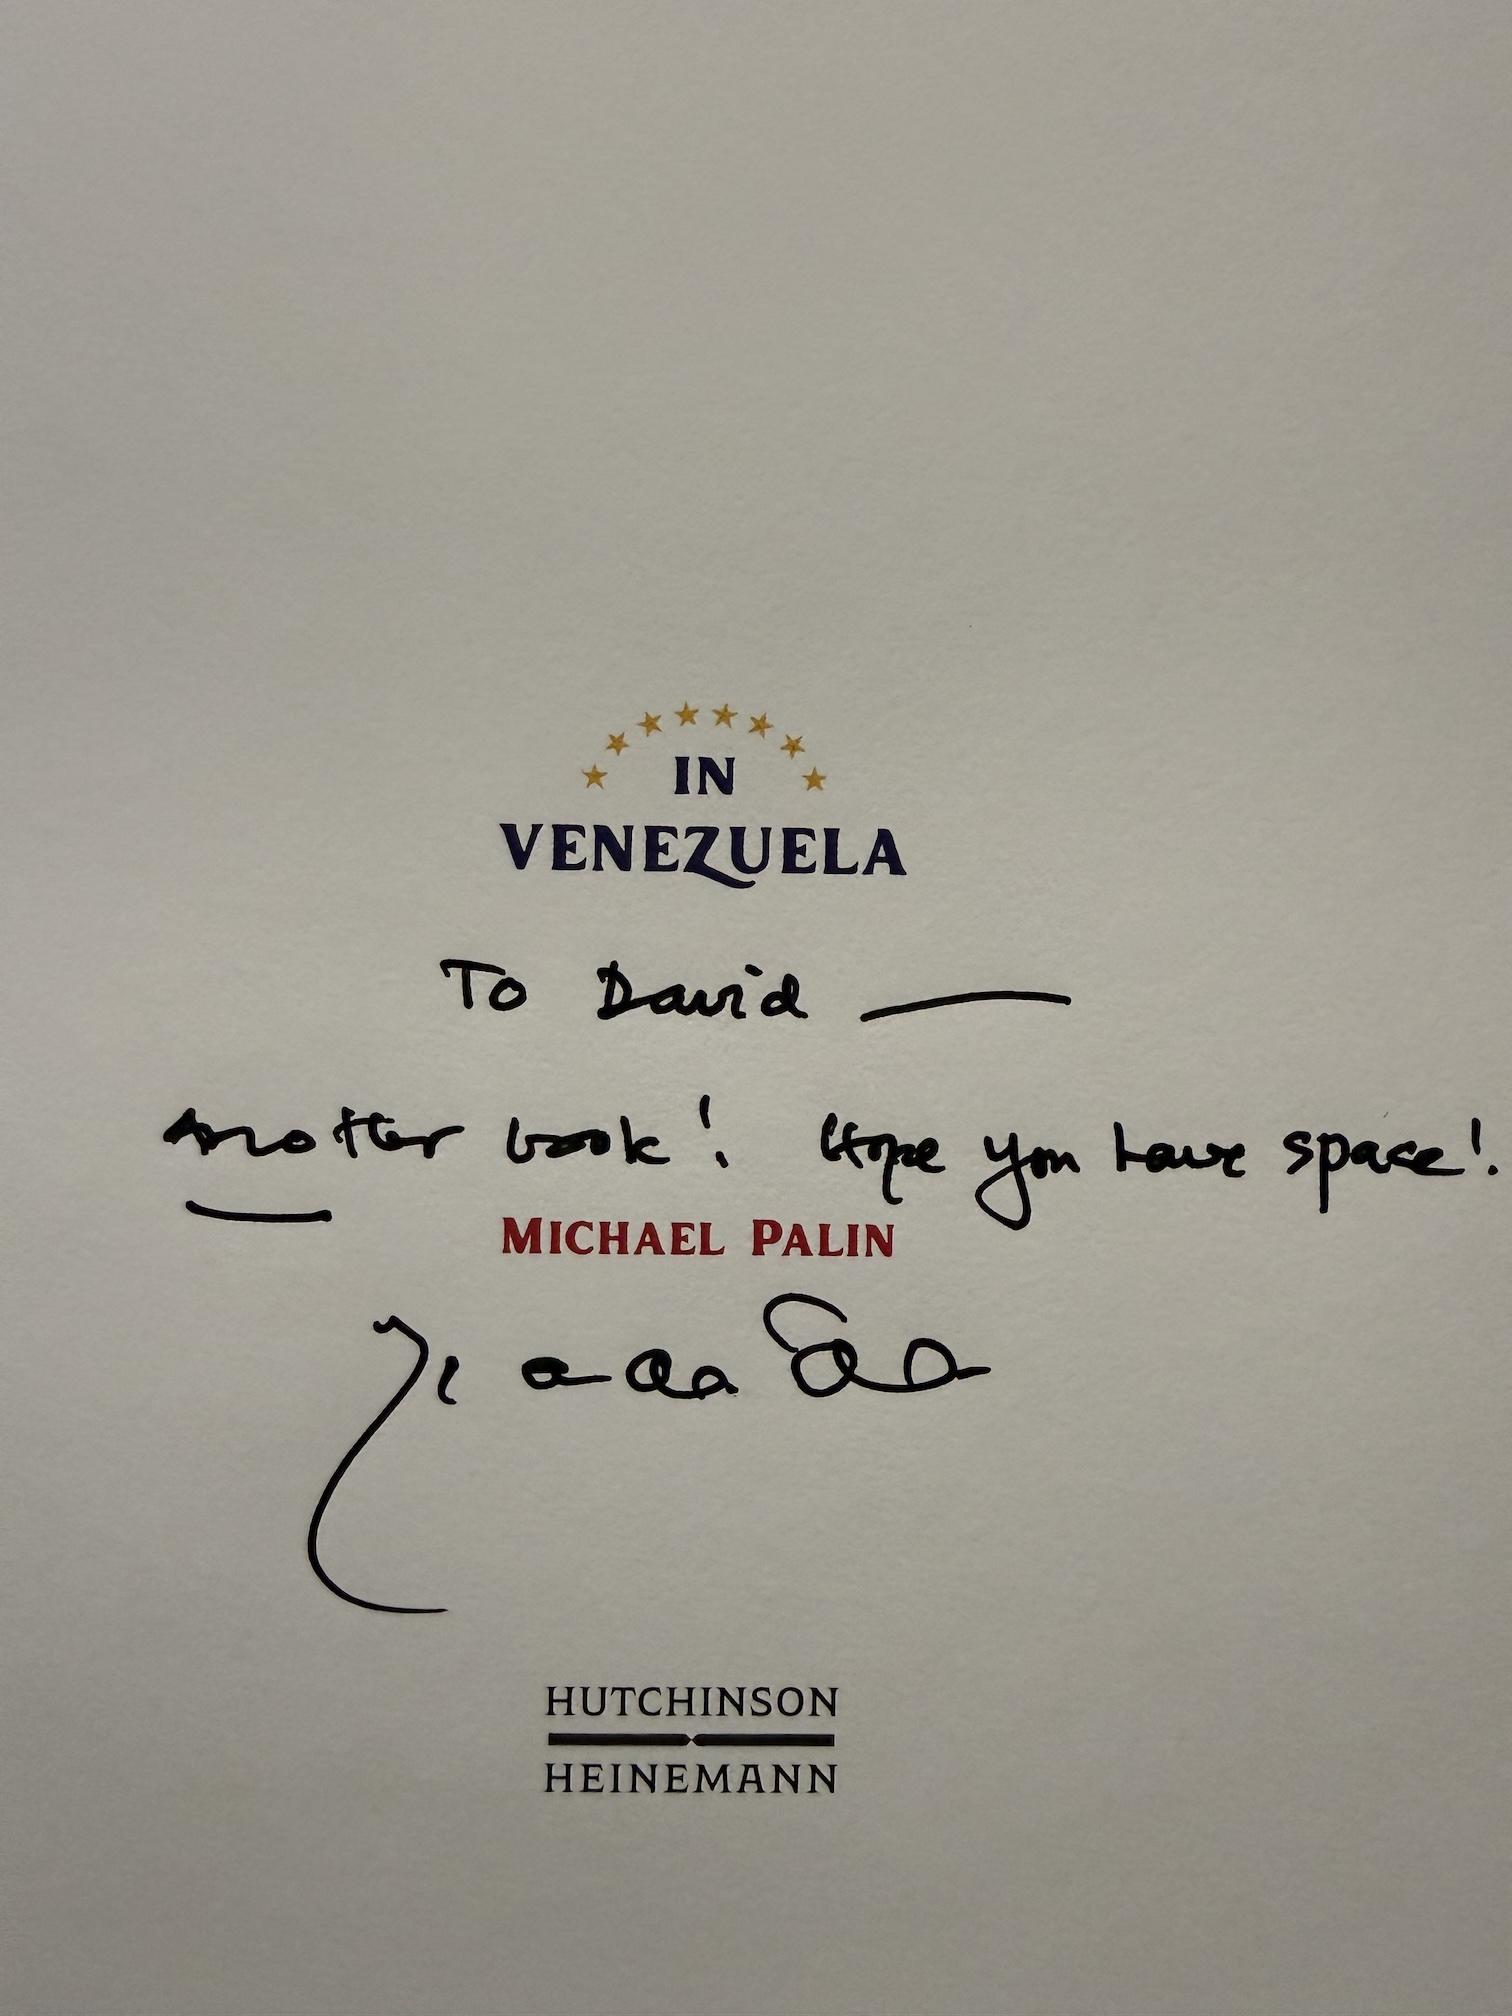 IN
VENEZUELA
To David —
Another book! Hope you have space!
MICHAEL PALIN
HUTCHINSON
HEINEMANN